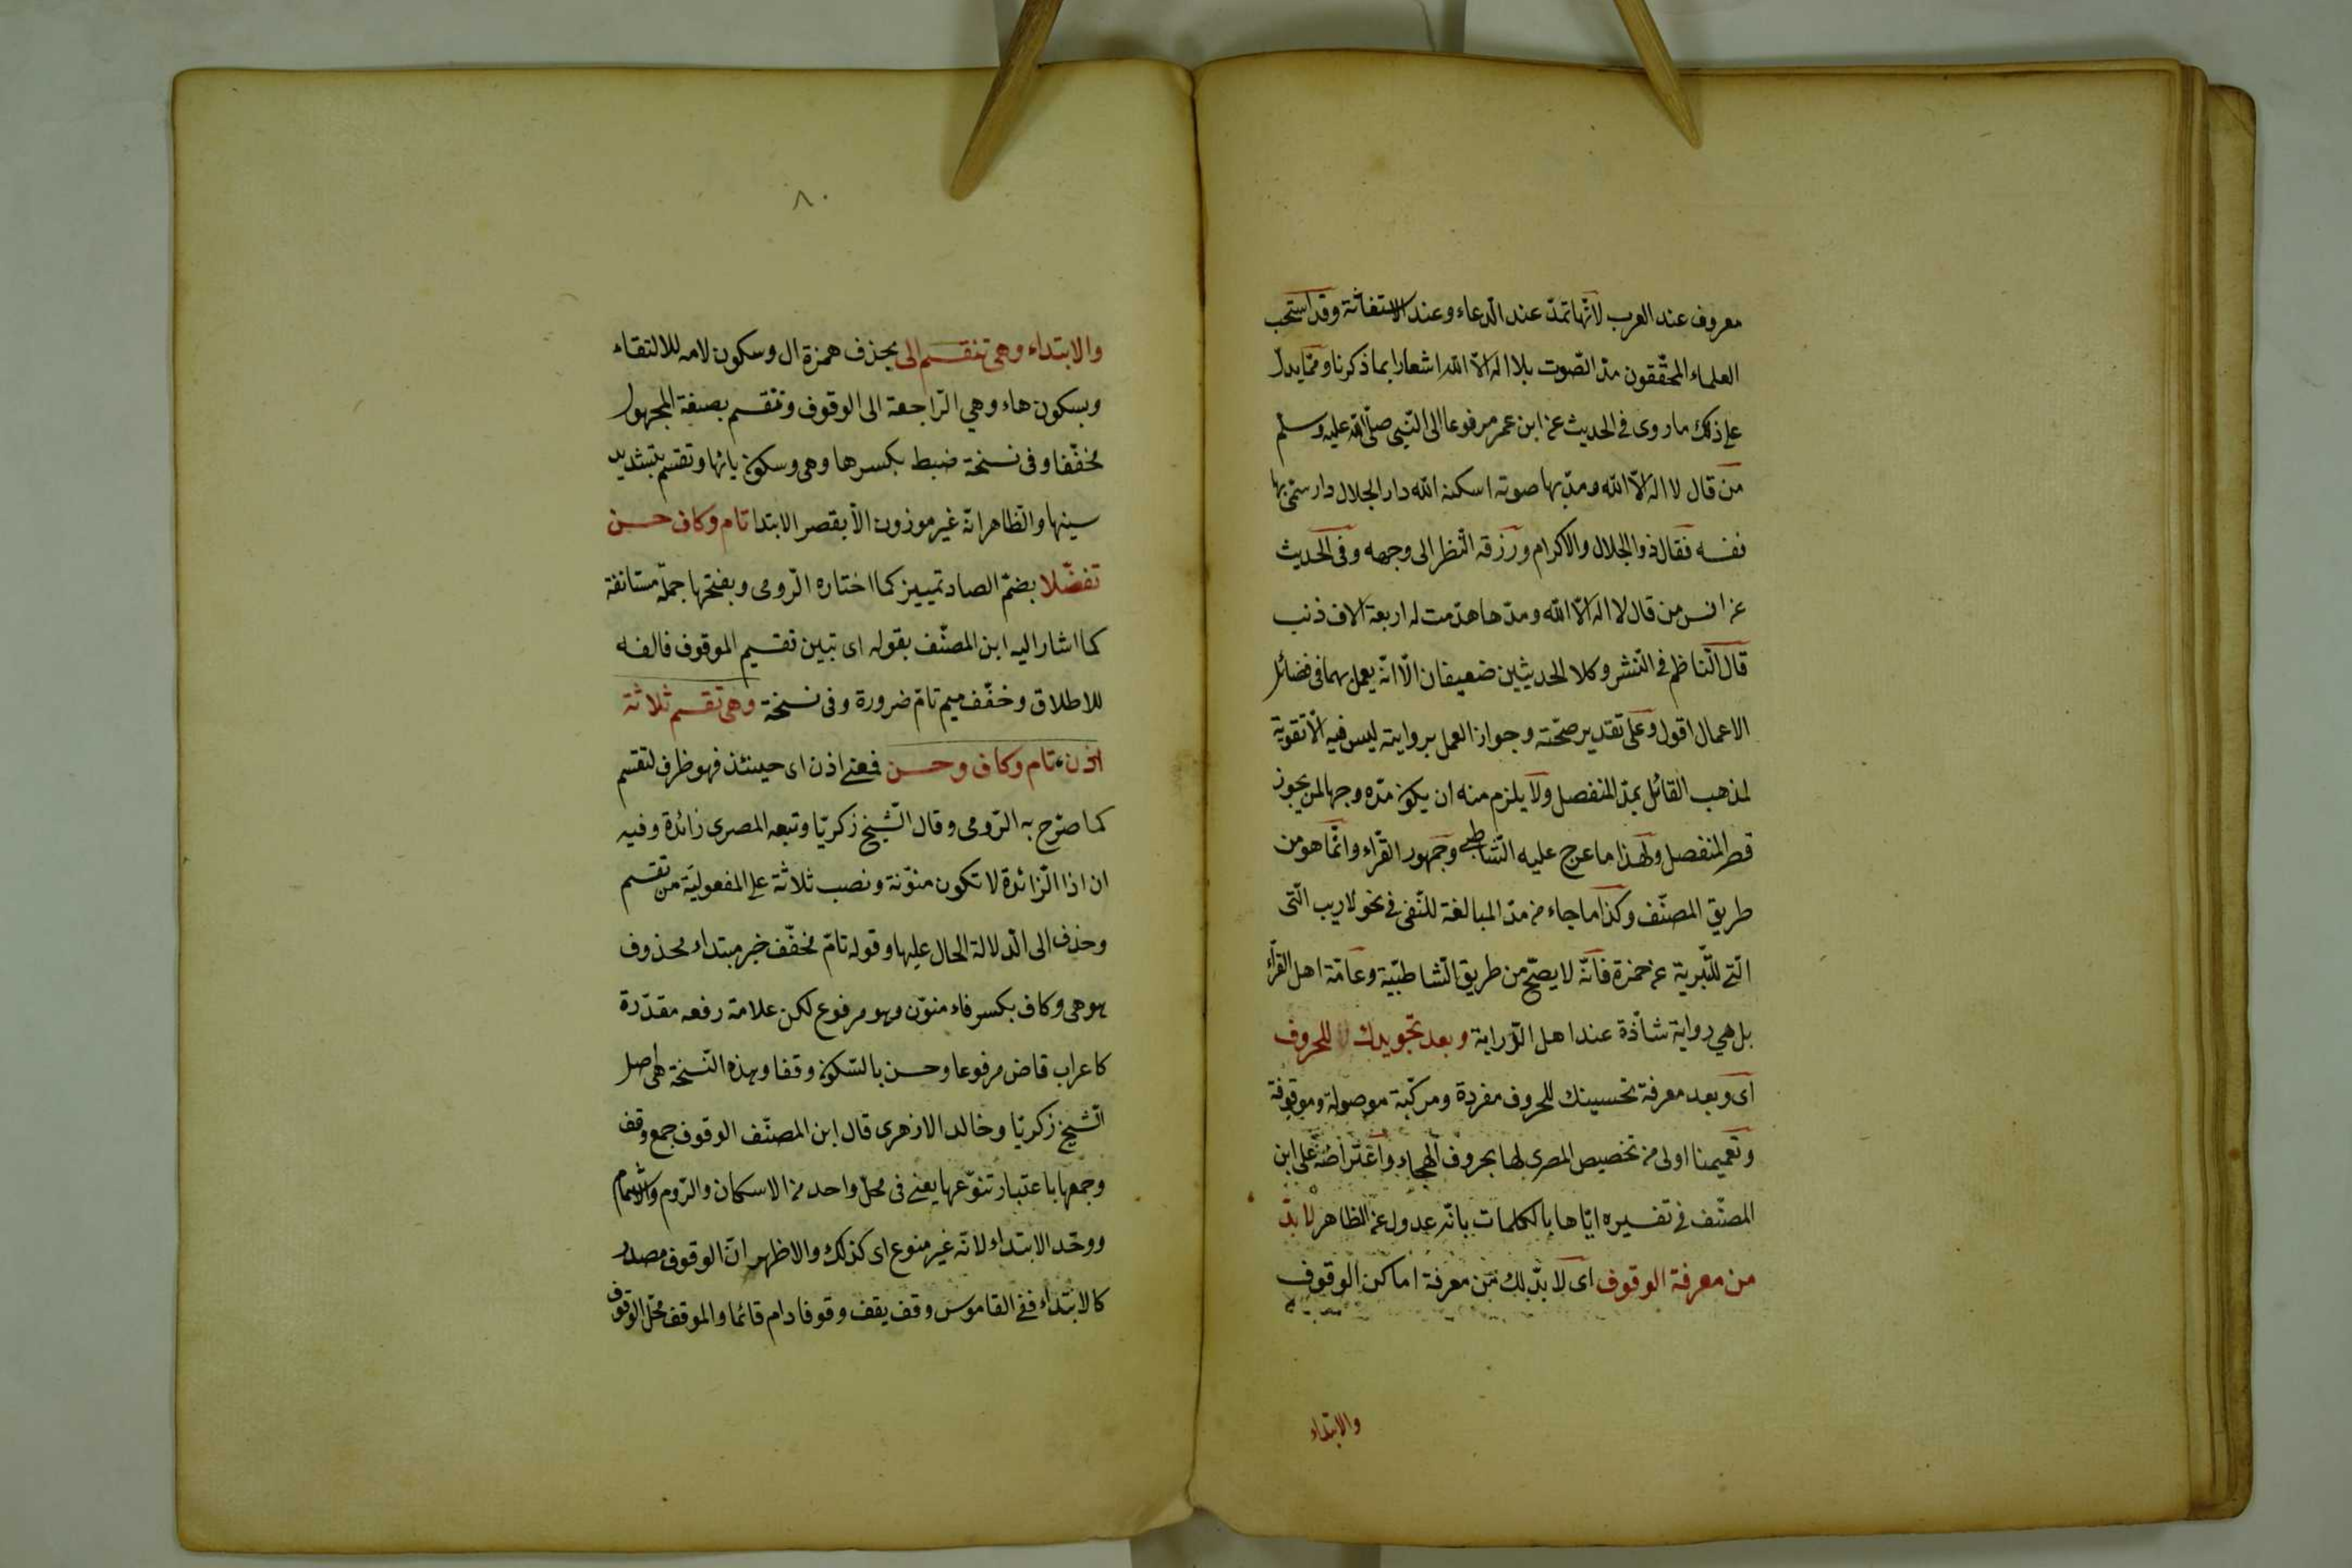 معروف عند العرب لانّها تمدّ عند الدّعاء وعند الاستغاثة وقد استحب
العلماء المحقّقون مدّ الصّوت بلا اله الّا الله اشعارا بما ذكرنا وممّا يدلّ
على ذلك ما روى فى الحديث عن ابن عمر مرفوعا الى النّبى صلّى الله عليه وسلّم
من قال لا اله الّا الله ومدّ بها صوته اسكنه الله دار الجلال دار سمّى بها
نفسه فقال ذو الجلال والاكرام ورزقه النّظر الى وجهه وفى الحديث
عن انس من قال لا اله الّا الله ومدّها هدّمت له اربعة الاف ذنب
قال النّاظم فى النّشر وكلا الحديثين ضعيفان الّا انّه يعمل بهما فى فضائل
الاعمال اقول وعلى تقدير صحّته وجواز العمل بروايته ليس فيه الّا تقوية
لمذهب القائل بمدّ المنفصل ولا يلزم منه ان يكون مدّه وجها لمن يجوز
قصر المنفصل ولهذا ما عرج عليه الشّاطبى وجمهور القرّاء وانّما هو من
طريق المصنّف وكذا ما جاء من مدّ المبالغة للنّفى فى نحو لا ريب الّتى
الّتى للتّبرية عن حمزة فانّه لا يصحّ من طريق الشّاطبيّة وعامّة اهل القرّاء
بل هى رواية شاذّة عند اهل الدّراية وبعد تجويدك للحروف
اى وبعد معرفة تحسينك للحروف مفردة ومركّبة موصولة وموقوفة
وتعميمنا اولى من تخصيص المصرى لها بحروف الهجاء واعتراضه على ابن
المصنّف فى تفسيره ايّاها بالكلمات بانّه عدول عن الظاهر لا بدّ
من معرفة الوقوف اى لا بدّ لك من معرفة اماكن الوقوف
والابتداء
٨٠
والابتداء وهى تنقسم الى بحذف همزة ال وسكون لامه للالتقاء
وبسكون هاء وهى الرّاجعة الى الوقوف وتنقسم بصيغة المجهول
مخفّفا وفى نسخة ضبط بكسر ها وهى وسكون يائها وتقسم بتشديد
سينها والظاهر انّه غير موزون الّا بقصر الابتدا تام وكاف حسن
تفضّلا بضمّ الصاد تمييز كما اختاره الرّومى وبفتحها جملة مستانفة
كما اشار اليه ابن المصنّف بقوله اى تبين تقسيم الموقوف فالفه
للاطلاق وخفّف ميم تامّ ضرورة وفى نسخة وهى تقسم ثلاثة
اذن تام وكاف وحسن فمعنى اذن اى حينئذ فهو ظرف لتقسم
كما صرّح به الرّومى وقال الشّيخ زكريّا وتبعه المصرى زائدة وفيه
ان اذا الزّائدة لا تكون منوّنة ونصب ثلاثة على المفعوليّة من تقسم
وحذف الى الدّلالة الحال عليها وقوله تامّ مخفّف خبر مبتداء محذوف
هو هى وكاف بكسر فاء منوّن وهو مرفوع لكن علامة رفعه مقدّرة
كاعراب قاض مرفوعا وحسن بالسّكون وقفا وهذه النّسخة هى اصل
الشّيخ زكريّا وخالد الازهرى قال ابن المصنّف الوقوف جمع وقف
وجمعها باعتبار تنوّعها يعنى فى محلّ واحد من الاسكان والرّوم والاشمام
ووحّد الابتداء لانّه غير منوع اى كذلك والاظهر انّ الوقوف مصدر
كالابتداء ففى القاموس وقف يقف وقوفا دام قائما والموقف محلّ الوقوف